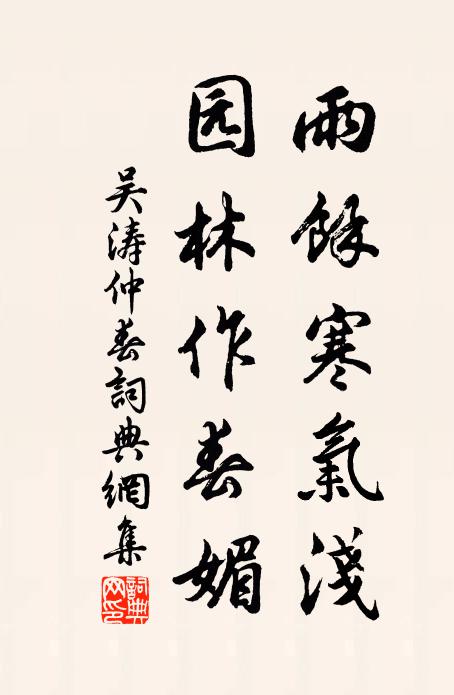 雨餘寒氣淺
园林作春媚
吴涛仲春詞典網集
詞典网印